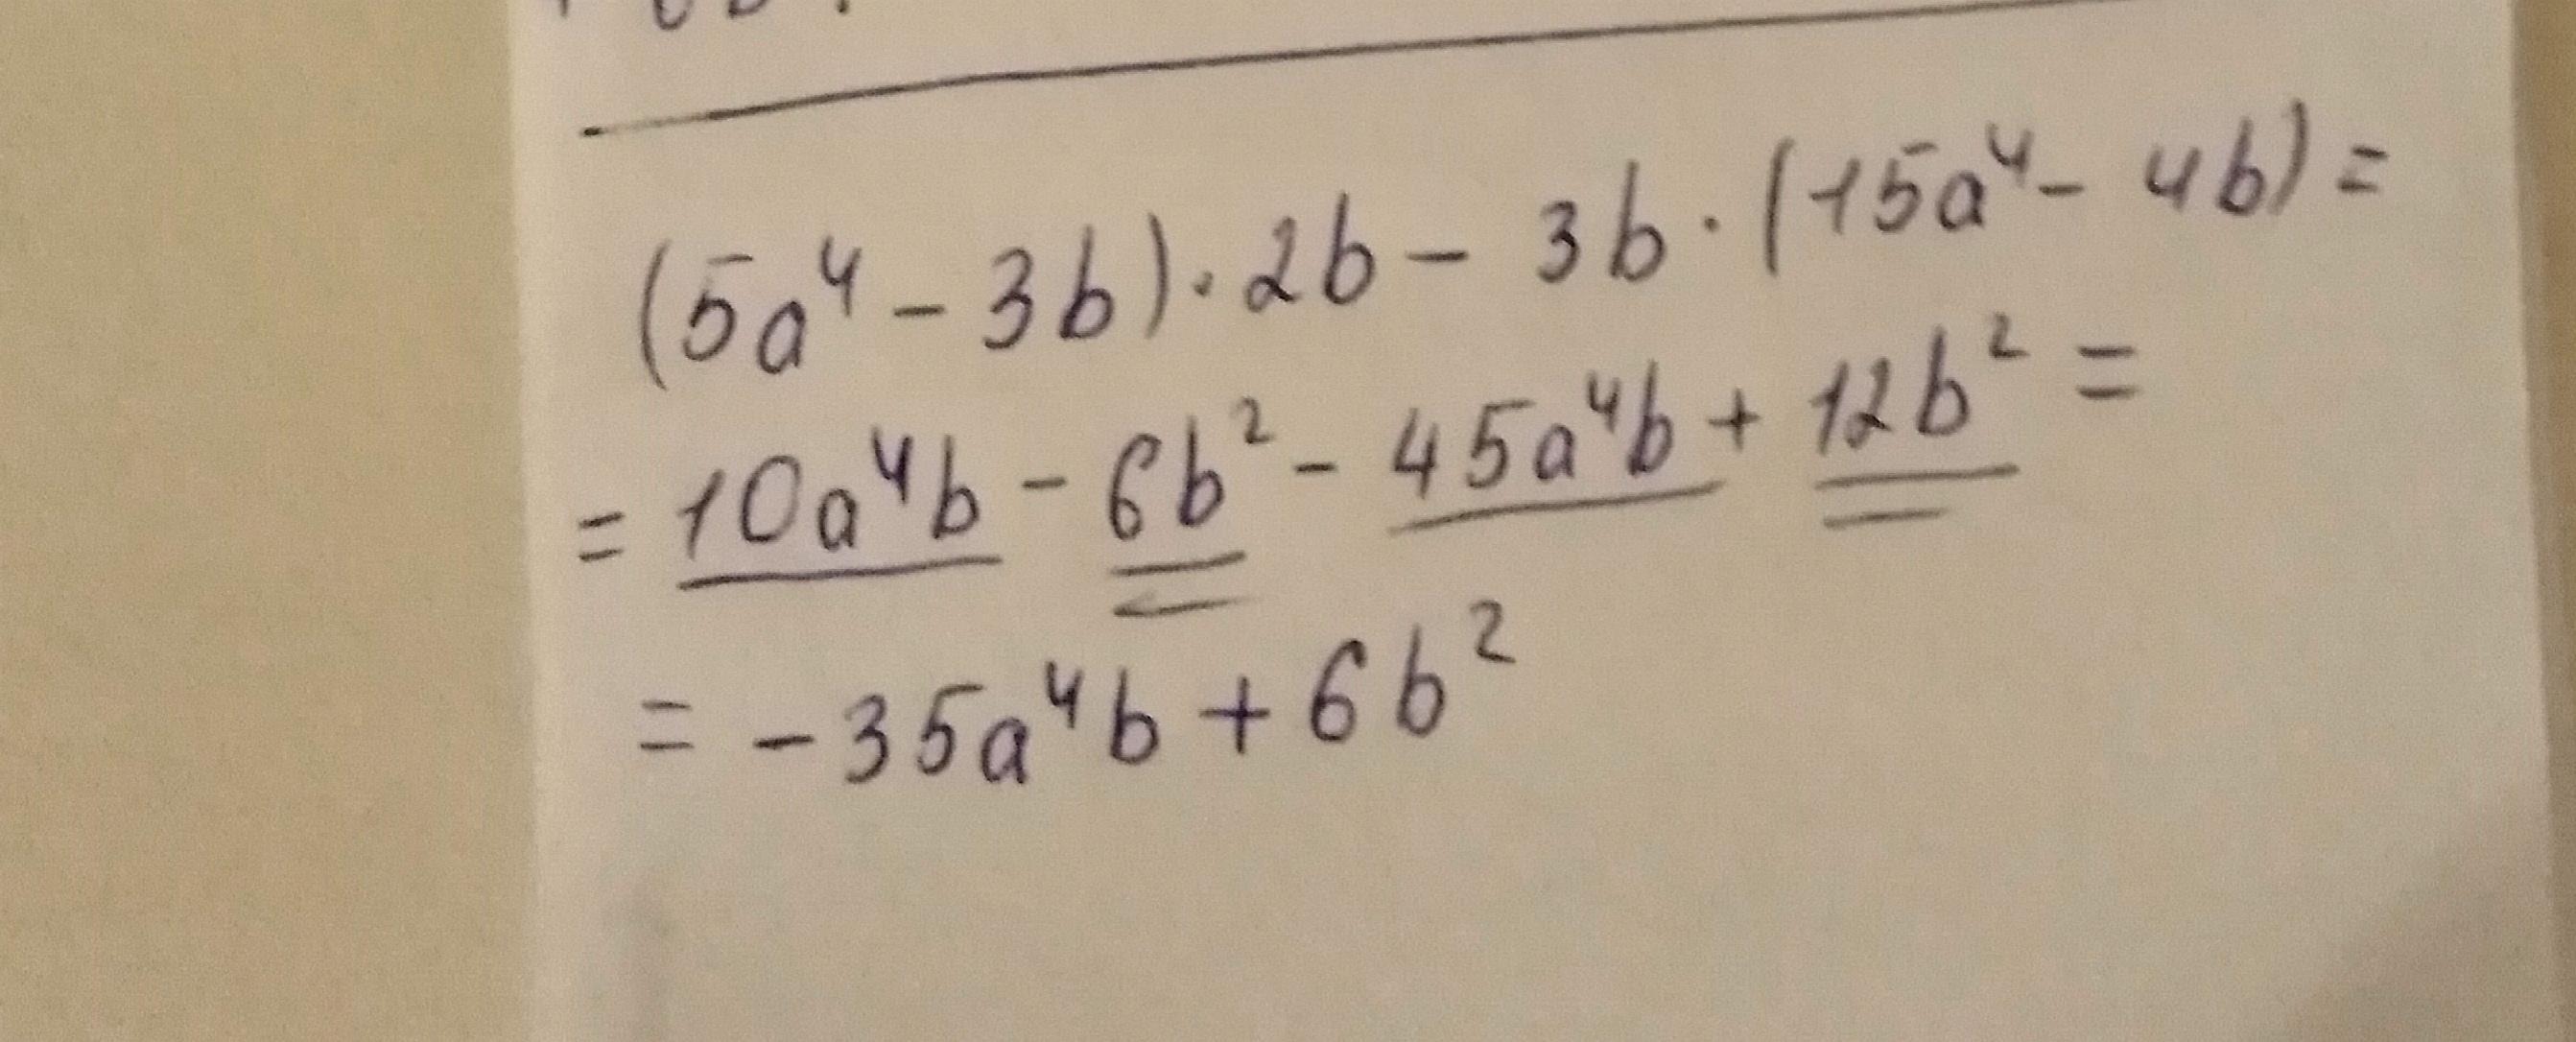 (5a⁴ - 3b) · 2b - 3b · (15a⁴ - 4b) =
= 10a⁴b - 6b² - 45a⁴b + 12b² =
= - 35a⁴b + 6b²